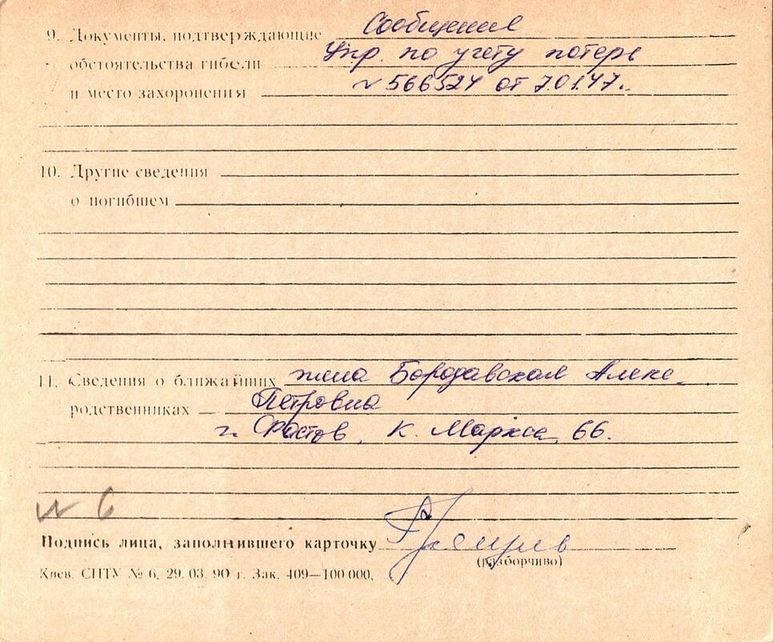 9. Документы, подтверждающие Сообщение
обстоятельства гибели Упр. по учету потерь
и место захоронения № 566524 от 7.01.47.
10. Другие сведения
о погибшем
11. Сведения о ближайших жена Бородавская Алекс.
родственниках Петровна
г. Фастов, К. Маркса 66.
№ 6
Подпись лица, заполнившего карточку
(разборчиво)
Киев. СПТУ № 6. 29. 03. 90 г. Зак. 409—100 000.